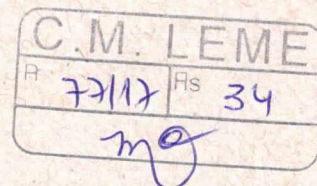 C.M. LEME
P 77/17 Fls 34